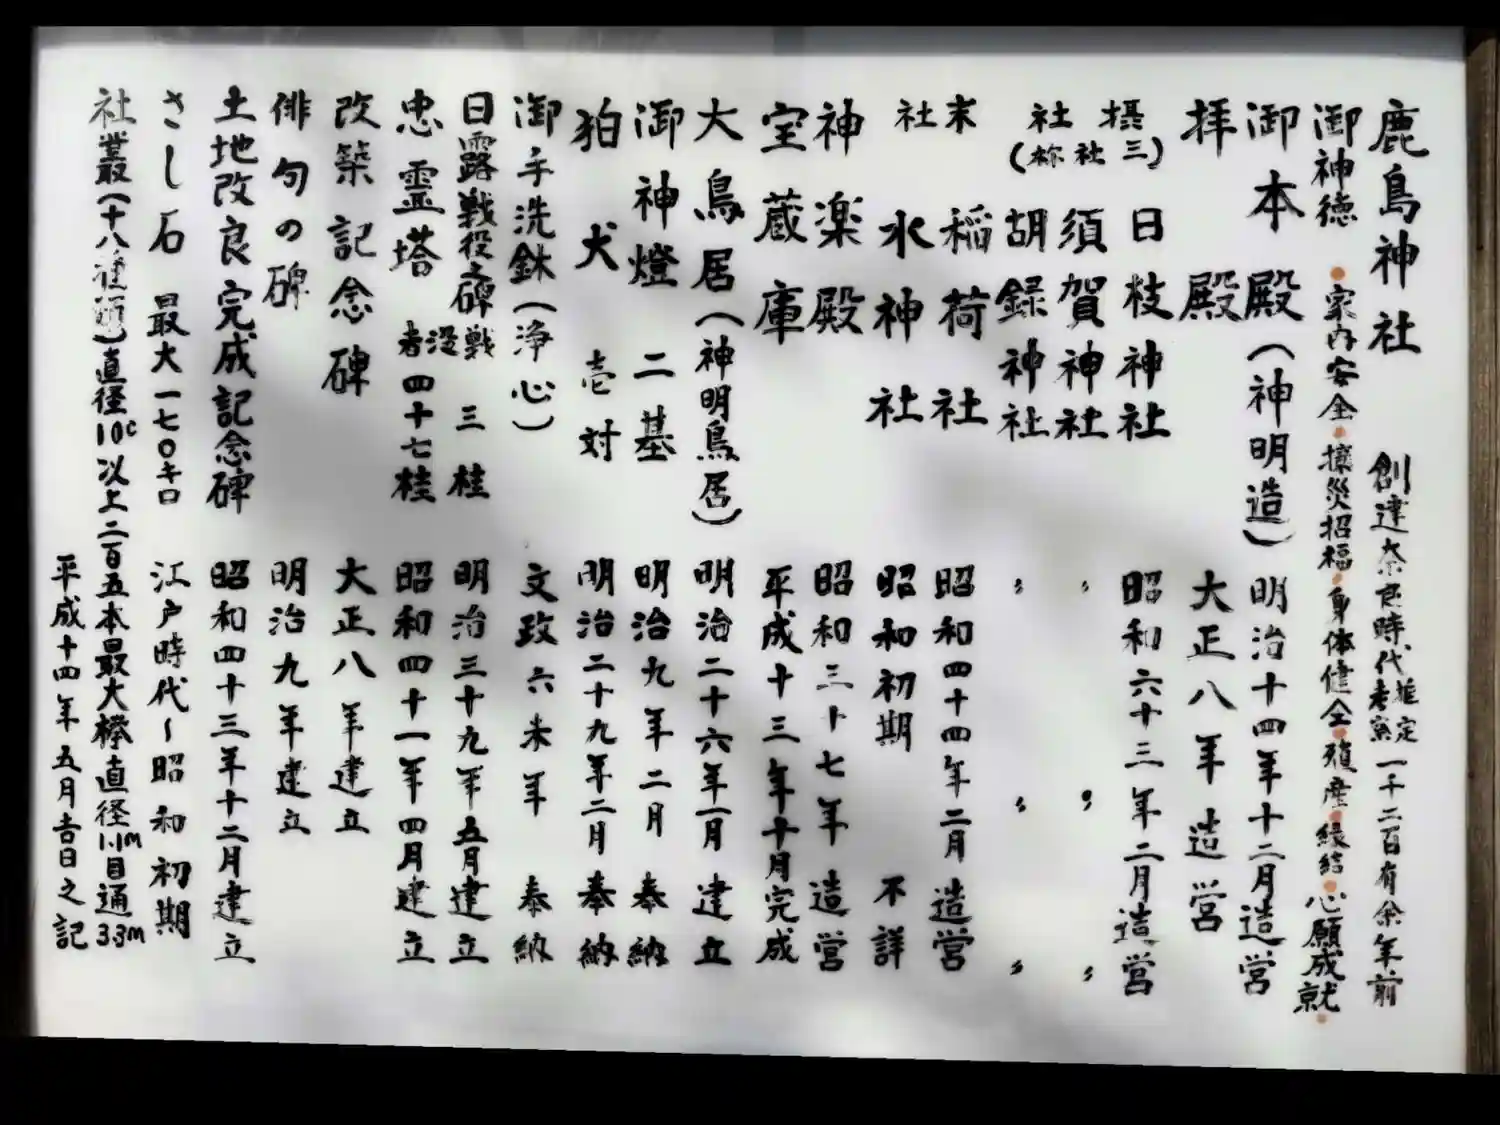 鹿島神社 創建奈良時代推定考察一千二百有余年前
御神徳 ・家内安全・攘災招福・身体健全・殖産・縁結・心願成就・
御本殿(神明造) 明治十四年十二月造営
拝殿 大正八年造営
摂社(三社祢) 日枝神社 昭和六十三年二月造営
須賀神社 〃 〃 〃
胡録神社 〃 〃 〃
末社 稲荷社 昭和四十四年二月造営
水神社 昭和初期 不詳
神楽殿 昭和三十七年造営
宝蔵庫 平成十三年十月完成
大鳥居(神明鳥居) 明治二十六年一月建立
御神燈 二基 明治九年二月奉納
狛犬 壱対 明治二十九年二月奉納
御手洗鉢(浄心) 文政六未年 奉納
日露戦役之碑 戦没者 三桂 明治三十九年五月建立
忠霊塔 四十七桂 昭和四十一年四月建立
改築記念碑 大正八年建立
俳句の碑 明治九年建立
土地改良完成記念碑 昭和四十三年十二月建立
さし石 最大一七〇キロ 江戸時代〜昭和初期
社叢(十八種類)直径10c以上二百五本最大欅直径1.1m目通3.3m
平成十四年五月吉日之記